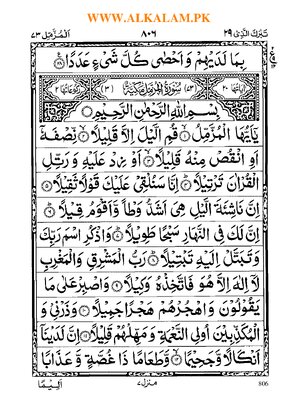 WWW.ALKALAM.PK
تبٰرك الذی ۲۹
۸۰۶
المزمل ۷۳
بِمَا لَدَيْهِمْ وَاَحْصٰى كُلَّ شَىْءٍ عَدَدًا
سُوْرَةُ الْمُزَّمِّلِ مَكِّيَّةٌ
بِسْمِ اللهِ الرَّحْمٰنِ الرَّحِيْمِ
يٰٓاَيُّهَا الْمُزَّمِّلُ ۙ قُمِ الَّيْلَ اِلَّا قَلِيْلًا ۙ نِّصْفَهٗٓ
اَوِ انْقُصْ مِنْهُ قَلِيْلًا ۙ اَوْ زِدْ عَلَيْهِ وَرَتِّلِ
الْقُرْاٰنَ تَرْتِيْلًا ؕ اِنَّا سَنُلْقِىْ عَلَيْكَ قَوْلًا ثَقِيْلًا
اِنَّ نَاشِئَةَ الَّيْلِ هِىَ اَشَدُّ وَطْاً وَّاَقْوَمُ قِيْلًا ؕ
اِنَّ لَكَ فِى النَّهَارِ سَبْحًا طَوِيْلًا ؕ وَاذْكُرِ اسْمَ رَبِّكَ
وَتَبَتَّلْ اِلَيْهِ تَبْتِيْلًا ؕ رَبُّ الْمَشْرِقِ وَالْمَغْرِبِ
لَآ اِلٰهَ اِلَّا هُوَ فَاتَّخِذْهُ وَكِيْلًا وَاصْبِرْ عَلٰى مَا
يَقُوْلُوْنَ وَاهْجُرْهُمْ هَجْرًا جَمِيْلًا وَذَرْنِىْ وَ
الْمُكَذِّبِيْنَ اُولِى النَّعْمَةِ وَمَهِّلْهُمْ قَلِيْلًا اِنَّ لَدَيْنَآ
اَنْكَالًا وَّجَحِيْمًا ۙ وَّطَعَامًا ذَا غُصَّةٍ وَّعَذَابًا
اَلِيْمًا
منزل ۷
806